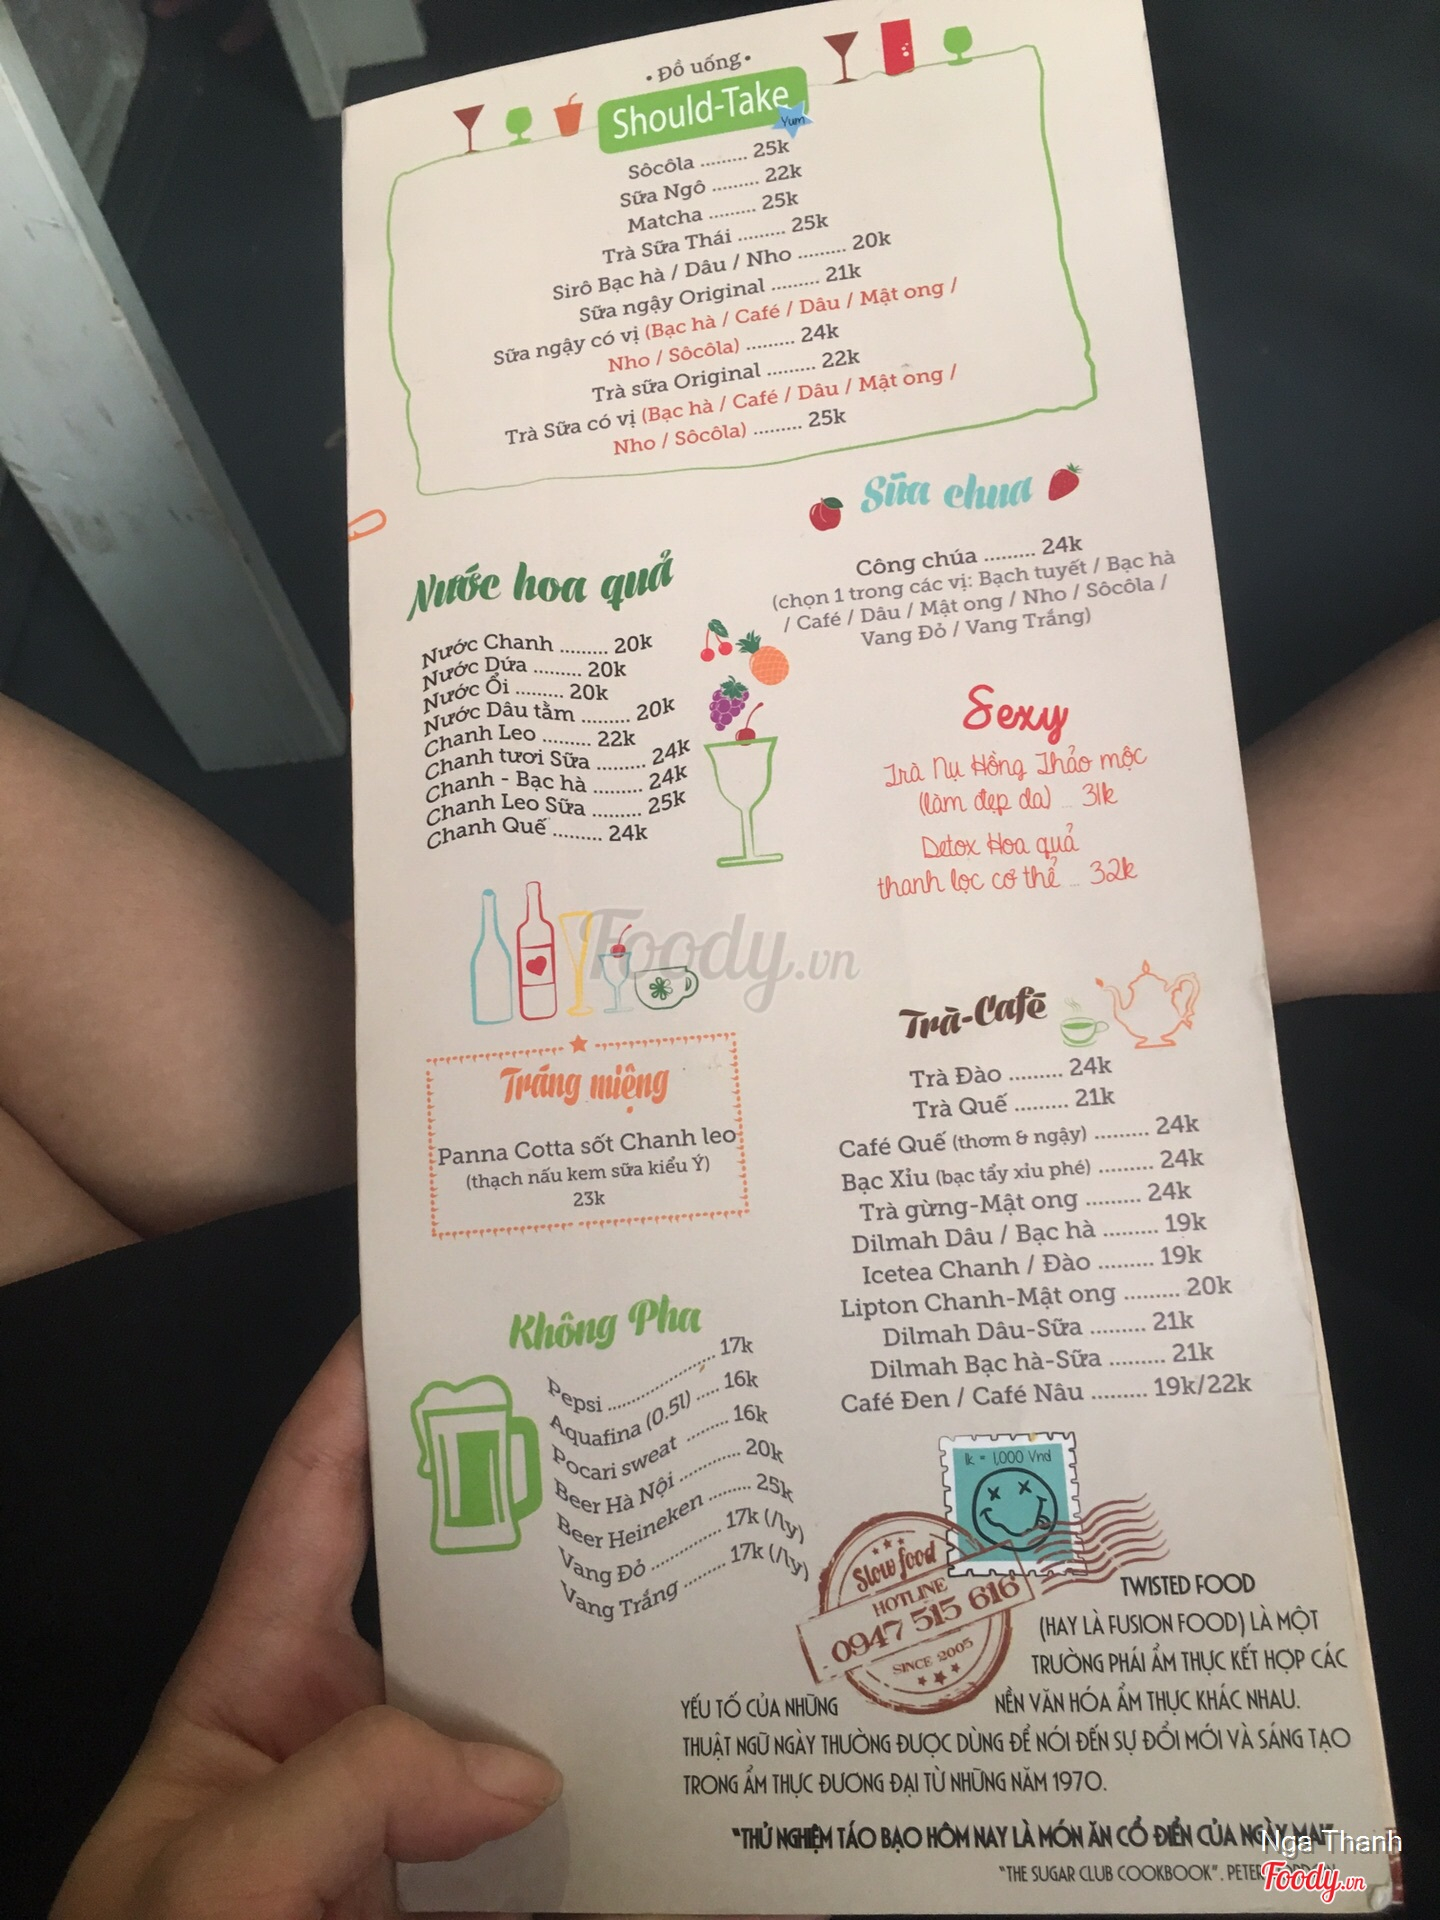 • Đồ uống •
Should-Take
Yum
Sôcôla ......... 25k
Sữa Ngô ......... 22k
Matcha ......... 25k
Trà Sữa Thái ......... 25k
Sirô Bạc hà / Dâu / Nho ......... 20k
Sữa ngậy Original ......... 21k
Sữa ngậy có vị (Bạc hà / Café / Dâu / Mật ong /
Nho / Sôcôla) ......... 24k
Trà sữa Original ......... 22k
Trà Sữa có vị (Bạc hà / Café / Dâu / Mật ong /
Nho / Sôcôla) ......... 25k
Sữa chua
Công chúa ......... 24k
(chọn 1 trong các vị: Bạch tuyết / Bạc hà
/ Café / Dâu / Mật ong / Nho / Sôcôla /
Vang Đỏ / Vang Trắng)
Nước hoa quả
Nước Chanh ......... 20k
Nước Dứa ......... 20k
Nước Ổi ......... 20k
Nước Dâu tằm ......... 20k
Chanh Leo ......... 22k
Chanh tươi Sữa ......... 24k
Chanh - Bạc hà ......... 24k
Chanh Leo Sữa ......... 25k
Chanh Quế ......... 24k
Sexy
Trà Nụ Hồng Thảo mộc
(làm đẹp da) ... 31k
Detox Hoa quả
thanh lọc cơ thể ... 32k
Foody.vn
Tráng miệng
Panna Cotta sốt Chanh leo
(thạch nấu kem sữa kiểu Ý)
23k
Trà-Café
Trà Đào ......... 24k
Trà Quế ......... 21k
Café Quế (thơm & ngậy) ......... 24k
Bạc Xỉu (bạc tẩy xỉu phé) ......... 24k
Trà gừng-Mật ong ......... 24k
Dilmah Dâu / Bạc hà ......... 19k
Icetea Chanh / Đào ......... 19k
Lipton Chanh-Mật ong ......... 20k
Dilmah Dâu-Sữa ......... 21k
Dilmah Bạc hà-Sữa ......... 21k
Café Đen / Café Nâu ......... 19k/22k
Không Pha
Pepsi .................... 17k
Aquafina (0.5l) ..... 16k
Pocari sweat ........ 16k
Beer Hà Nội ............ 20k
Beer Heineken ........ 25k
Vang Đỏ ............. 17k (/ly)
Vang Trắng ........ 17k (/ly)
1k = 1,000 Vnd
Slow food
HOTLINE
0947 515 616
SINCE 2005
TWISTED FOOD
(HAY LÀ FUSION FOOD) LÀ MỘT
TRƯỜNG PHÁI ẨM THỰC KẾT HỢP CÁC
YẾU TỐ CỦA NHỮNG NỀN VĂN HÓA ẨM THỰC KHÁC NHAU.
THUẬT NGỮ NGÀY THƯỜNG ĐƯỢC DÙNG ĐỂ NÓI ĐẾN SỰ ĐỔI MỚI VÀ SÁNG TẠO
TRONG ẨM THỰC ĐƯƠNG ĐẠI TỪ NHỮNG NĂM 1970.
"THỬ NGHIỆM TÁO BẠO HÔM NAY LÀ MÓN ĂN CỔ ĐIỂN CỦA NGÀY MAI"
"THE SUGAR CLUB COOKBOOK". PETER
Nga Thanh
Foody.vn